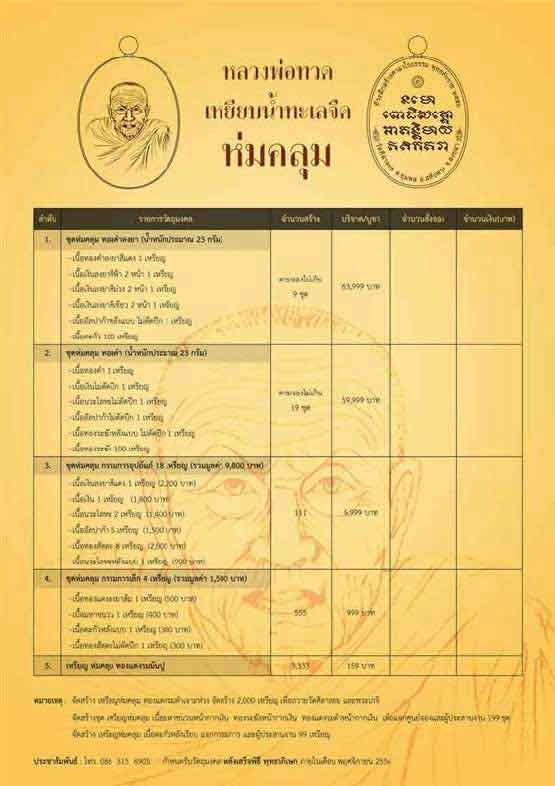 หลวงพ่อทวด
เหยียบน้ำทะเลจืด
ห่มคลุม
ลำดับ รายการวัตถุมงคล จำนวนสร้าง บริจาค/บูชา จำนวนสั่งจอง จำนวนเงิน(บาท)
1. ชุดห่มคลุม ทองคำลงยา (น้ำหนักประมาณ 23 กรัม)
-เนื้อทองคำลงยาสีแดง 1 เหรียญ
-เนื้อเงินลงยาสีฟ้า 2 หน้า 1 เหรียญ
-เนื้อเงินลงยาสีม่วง 2 หน้า 1 เหรียญ
-เนื้อเงินลงยาสีเขียว 2 หน้า 1 เหรียญ
-เนื้ออัลปาก้าหลังแบบ ไม่ตัดปีก 1 เหรียญ
-เนื้อตะกั่ว 100 เหรียญ
ตามจองไม่เกิน
9 ชุด
63,999 บาท
2. ชุดห่มคลุม ทองคำ (น้ำหนักประมาณ 23 กรัม)
-เนื้อทองคำ 1 เหรียญ
-เนื้อเงินไม่ตัดปีก 1 เหรียญ
-เนื้อนวะโลหะไม่ตัดปีก 1 เหรียญ
-เนื้ออัลปาก้าไม่ตัดปีก 1 เหรียญ
-เนื้อทองระฆังหลังแบบ ไม่ตัดปีก 1 เหรียญ
-เนื้อทองระฆัง 100 เหรียญ
ตามจองไม่เกิน
19 ชุด
59,999 บาท
3. ชุดห่มคลุม กรรมการอุปถัมภ์ 18 เหรียญ (รวมมูลค่า 9,800 บาท)
-เนื้อเงินลงยาสีแดง 1 เหรียญ (2,200 บาท)
-เนื้อเงิน 1 เหรียญ (1,800 บาท)
-เนื้อนวะโลหะ 2 เหรียญ (1,400 บาท)
-เนื้ออัลปาก้า 5 เหรียญ (1,500 บาท)
-เนื้อทองสัตตะ 8 เหรียญ (2,000 บาท)
-เนื้อนวะโลหะหลังแบบ 1 เหรียญ (900 บาท)
111
5,999 บาท
4. ชุดห่มคลุม กรรมการเล็ก 4 เหรียญ (รวมมูลค่า 1,590 บาท)
-เนื้อทองแดงลงยาส้ม 1 เหรียญ (500 บาท)
-เนื้อมหาชนวน 1 เหรียญ (400 บาท)
-เนื้อตะกั่วหลังแบบ 1 เหรียญ (390 บาท)
-เนื้อทองสัตตะไม่ตัดปีก 1 เหรียญ (300 บาท)
555
999 บาท
5. เหรียญ ห่มคลุม ทองแดงรมมันปู 3,333 159 บาท
หมายเหตุ : จัดสร้าง เหรียญห่มคลุม ทองแดงรมดำเจาะห่วง จัดสร้าง 2,000 เหรียญ เพื่อถวายวัดศิลาลอย และพระเกจิ
จัดสร้างชุด เหรียญห่มคลุม เนื้อมหาชนวนหน้ากากเงิน ทองระฆังหน้ากากเงิน ทองแดงรมดำหน้ากากเงิน เพื่อแจกศูนย์จองและผู้ประสานงาน 199 ชุด
จัดสร้าง เหรียญห่มคลุม เนื้อตะกั่วหลังเรียบ แจกกรรมการ และผู้ประสานงาน 99 เหรียญ
ประชาสัมพันธ์ : โทร. 086 315 6905 กำหนดรับวัตถุมงคล หลังเสร็จพิธี พุทธาภิเษก ภายในเดือน พฤศจิกายน